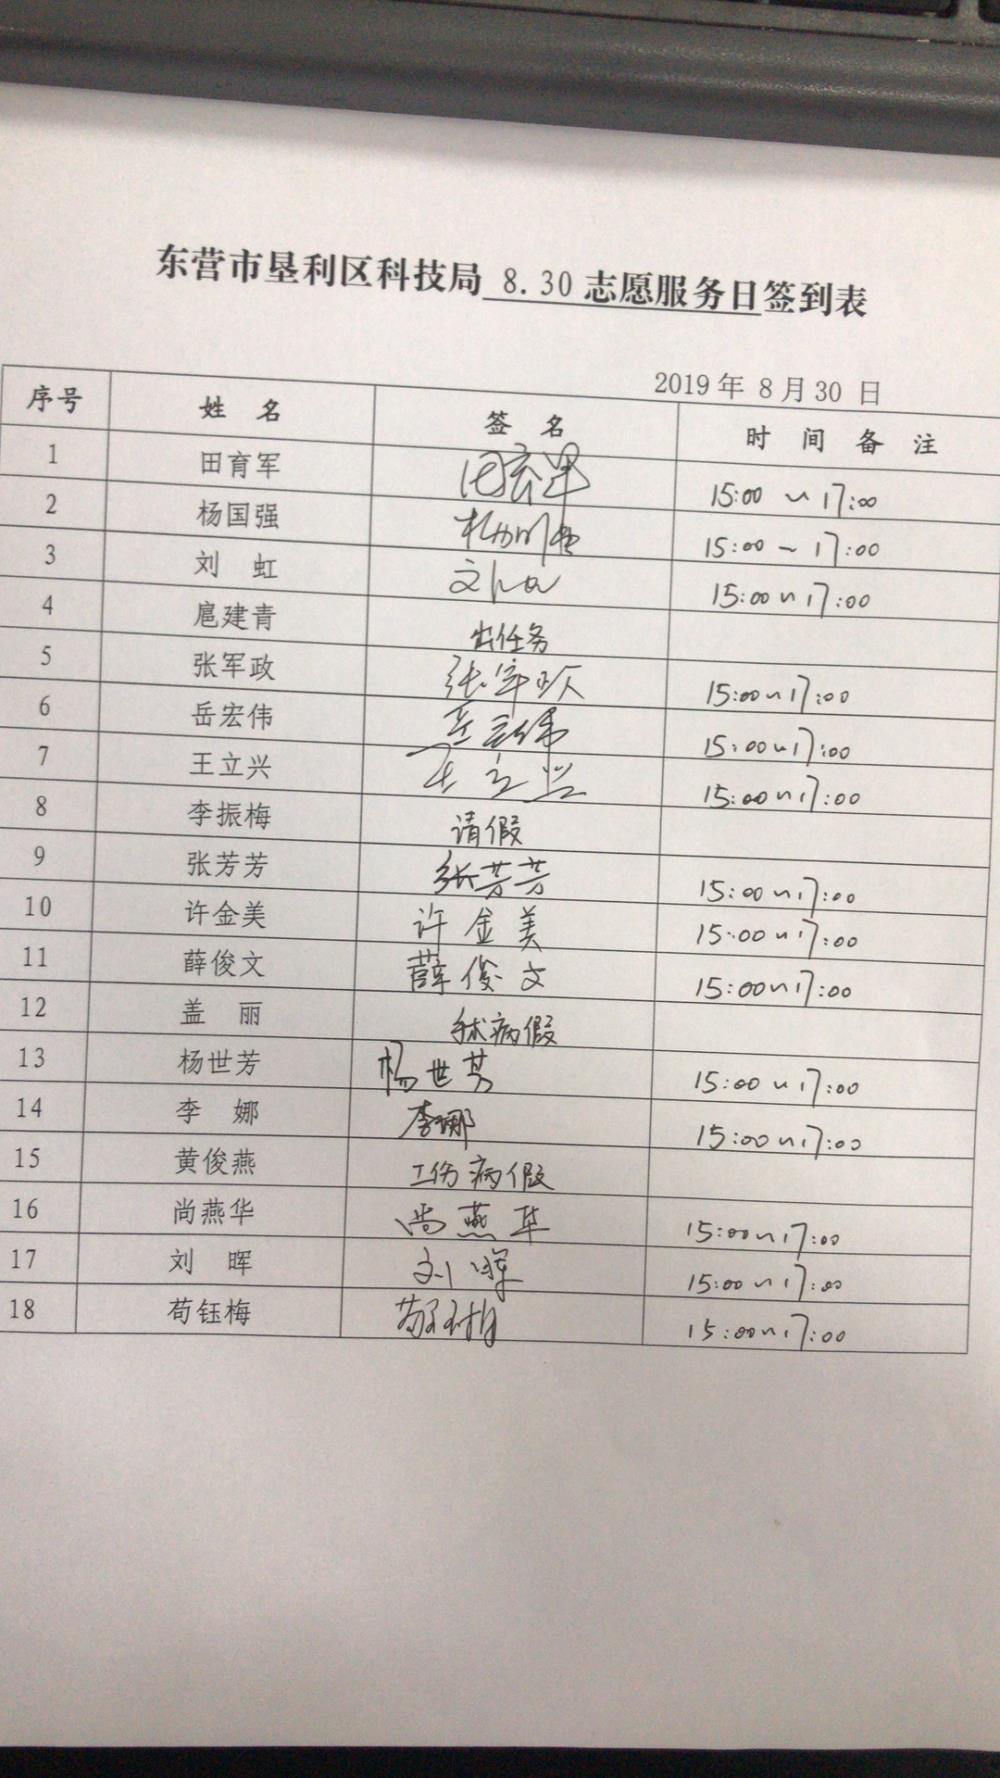 东营市垦利区科技局 8.30 志愿服务日签到表
2019 年 8 月 30 日
序号 姓 名 签 名 时 间 备 注
1 田育军 田育军 15:00 ~ 17:00
2 杨国强 杨国强 15:00 ~ 17:00
3 刘 虹 刘虹 15:00 ~ 17:00
4 扈建青 出任务
5 张军政 张军政 15:00 ~ 17:00
6 岳宏伟 岳宏伟 15:00 ~ 17:00
7 王立兴 王立兴 15:00 ~ 17:00
8 李振梅 请假
9 张芳芳 张芳芳 15:00 ~ 17:00
10 许金美 许金美 15:00 ~ 17:00
11 薛俊文 薛俊文 15:00 ~ 17:00
12 盖 丽 病假
13 杨世芳 杨世芳 15:00 ~ 17:00
14 李 娜 李娜 15:00 ~ 17:00
15 黄俊燕 工伤病假
16 尚燕华 尚燕华 15:00 ~ 17:00
17 刘 晖 刘晖 15:00 ~ 17:00
18 苟钰梅 苟钰梅 15:00 ~ 17:00